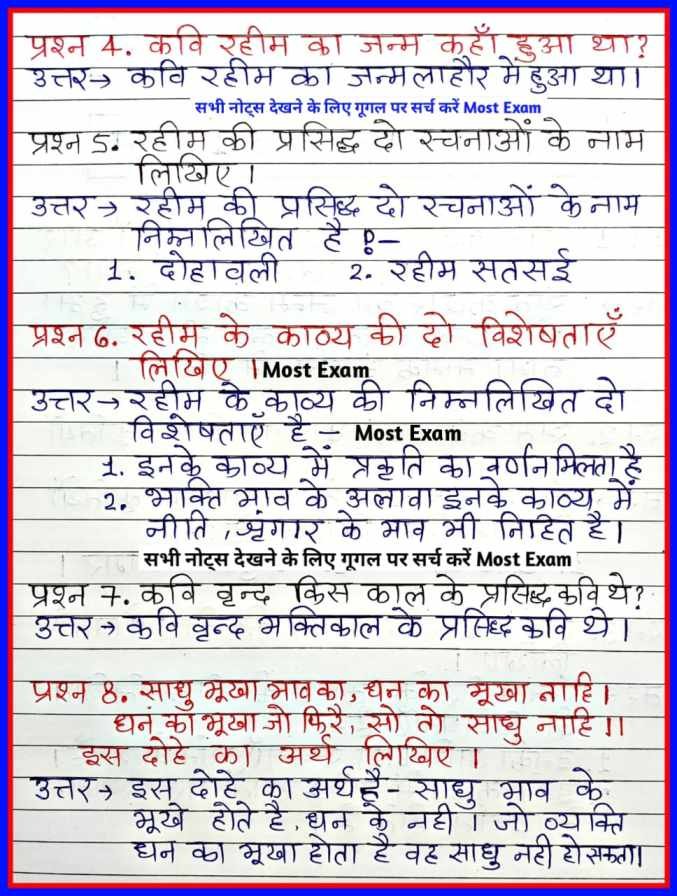 प्रश्न 4. कवि रहीम का जन्म कहाँ हुआ था?
उत्तर→ कवि रहीम का जन्म लाहौर में हुआ था।
सभी नोट्स देखने के लिए गूगल पर सर्च करें Most Exam
प्रश्न 5. रहीम की प्रसिद्ध दो रचनाओं के नाम
लिखिए।
उत्तर → रहीम की प्रसिद्ध दो रचनाओं के नाम
निम्नलिखित है :-
1. दोहावली 2. रहीम सतसई
प्रश्न 6. रहीम के काव्य की दो विशेषताएँ
लिखिए । Most Exam
उत्तर→ रहीम के काव्य की निम्नलिखित दो
विशेषताएँ है - Most Exam
1. इनके काव्य में प्रकृति का वर्णन मिलता है
2. भक्ति भाव के अलावा इनके काव्य में
नीति, श्रृंगार के भाव भी निहित है।
सभी नोट्स देखने के लिए गूगल पर सर्च करें Most Exam
प्रश्न 7. कवि वृन्द किस काल के प्रसिद्ध कवि थे?
उत्तर → कवि वृन्द भक्तिकाल के प्रसिद्ध कवि थे।
प्रश्न 8. साधु भूखा भाव का, धन का भूखा नाहि।
धन का भूखा जो फिरै, सो तो साधु नाहि।।
इस दोहे का अर्थ लिखिए।
उत्तर→ इस दोहे का अर्थ है - साधु भाव के
भूखे होते है, धन के नही । जो व्यक्ति
धन का भूखा होता है वह साधु नही हो सकता।